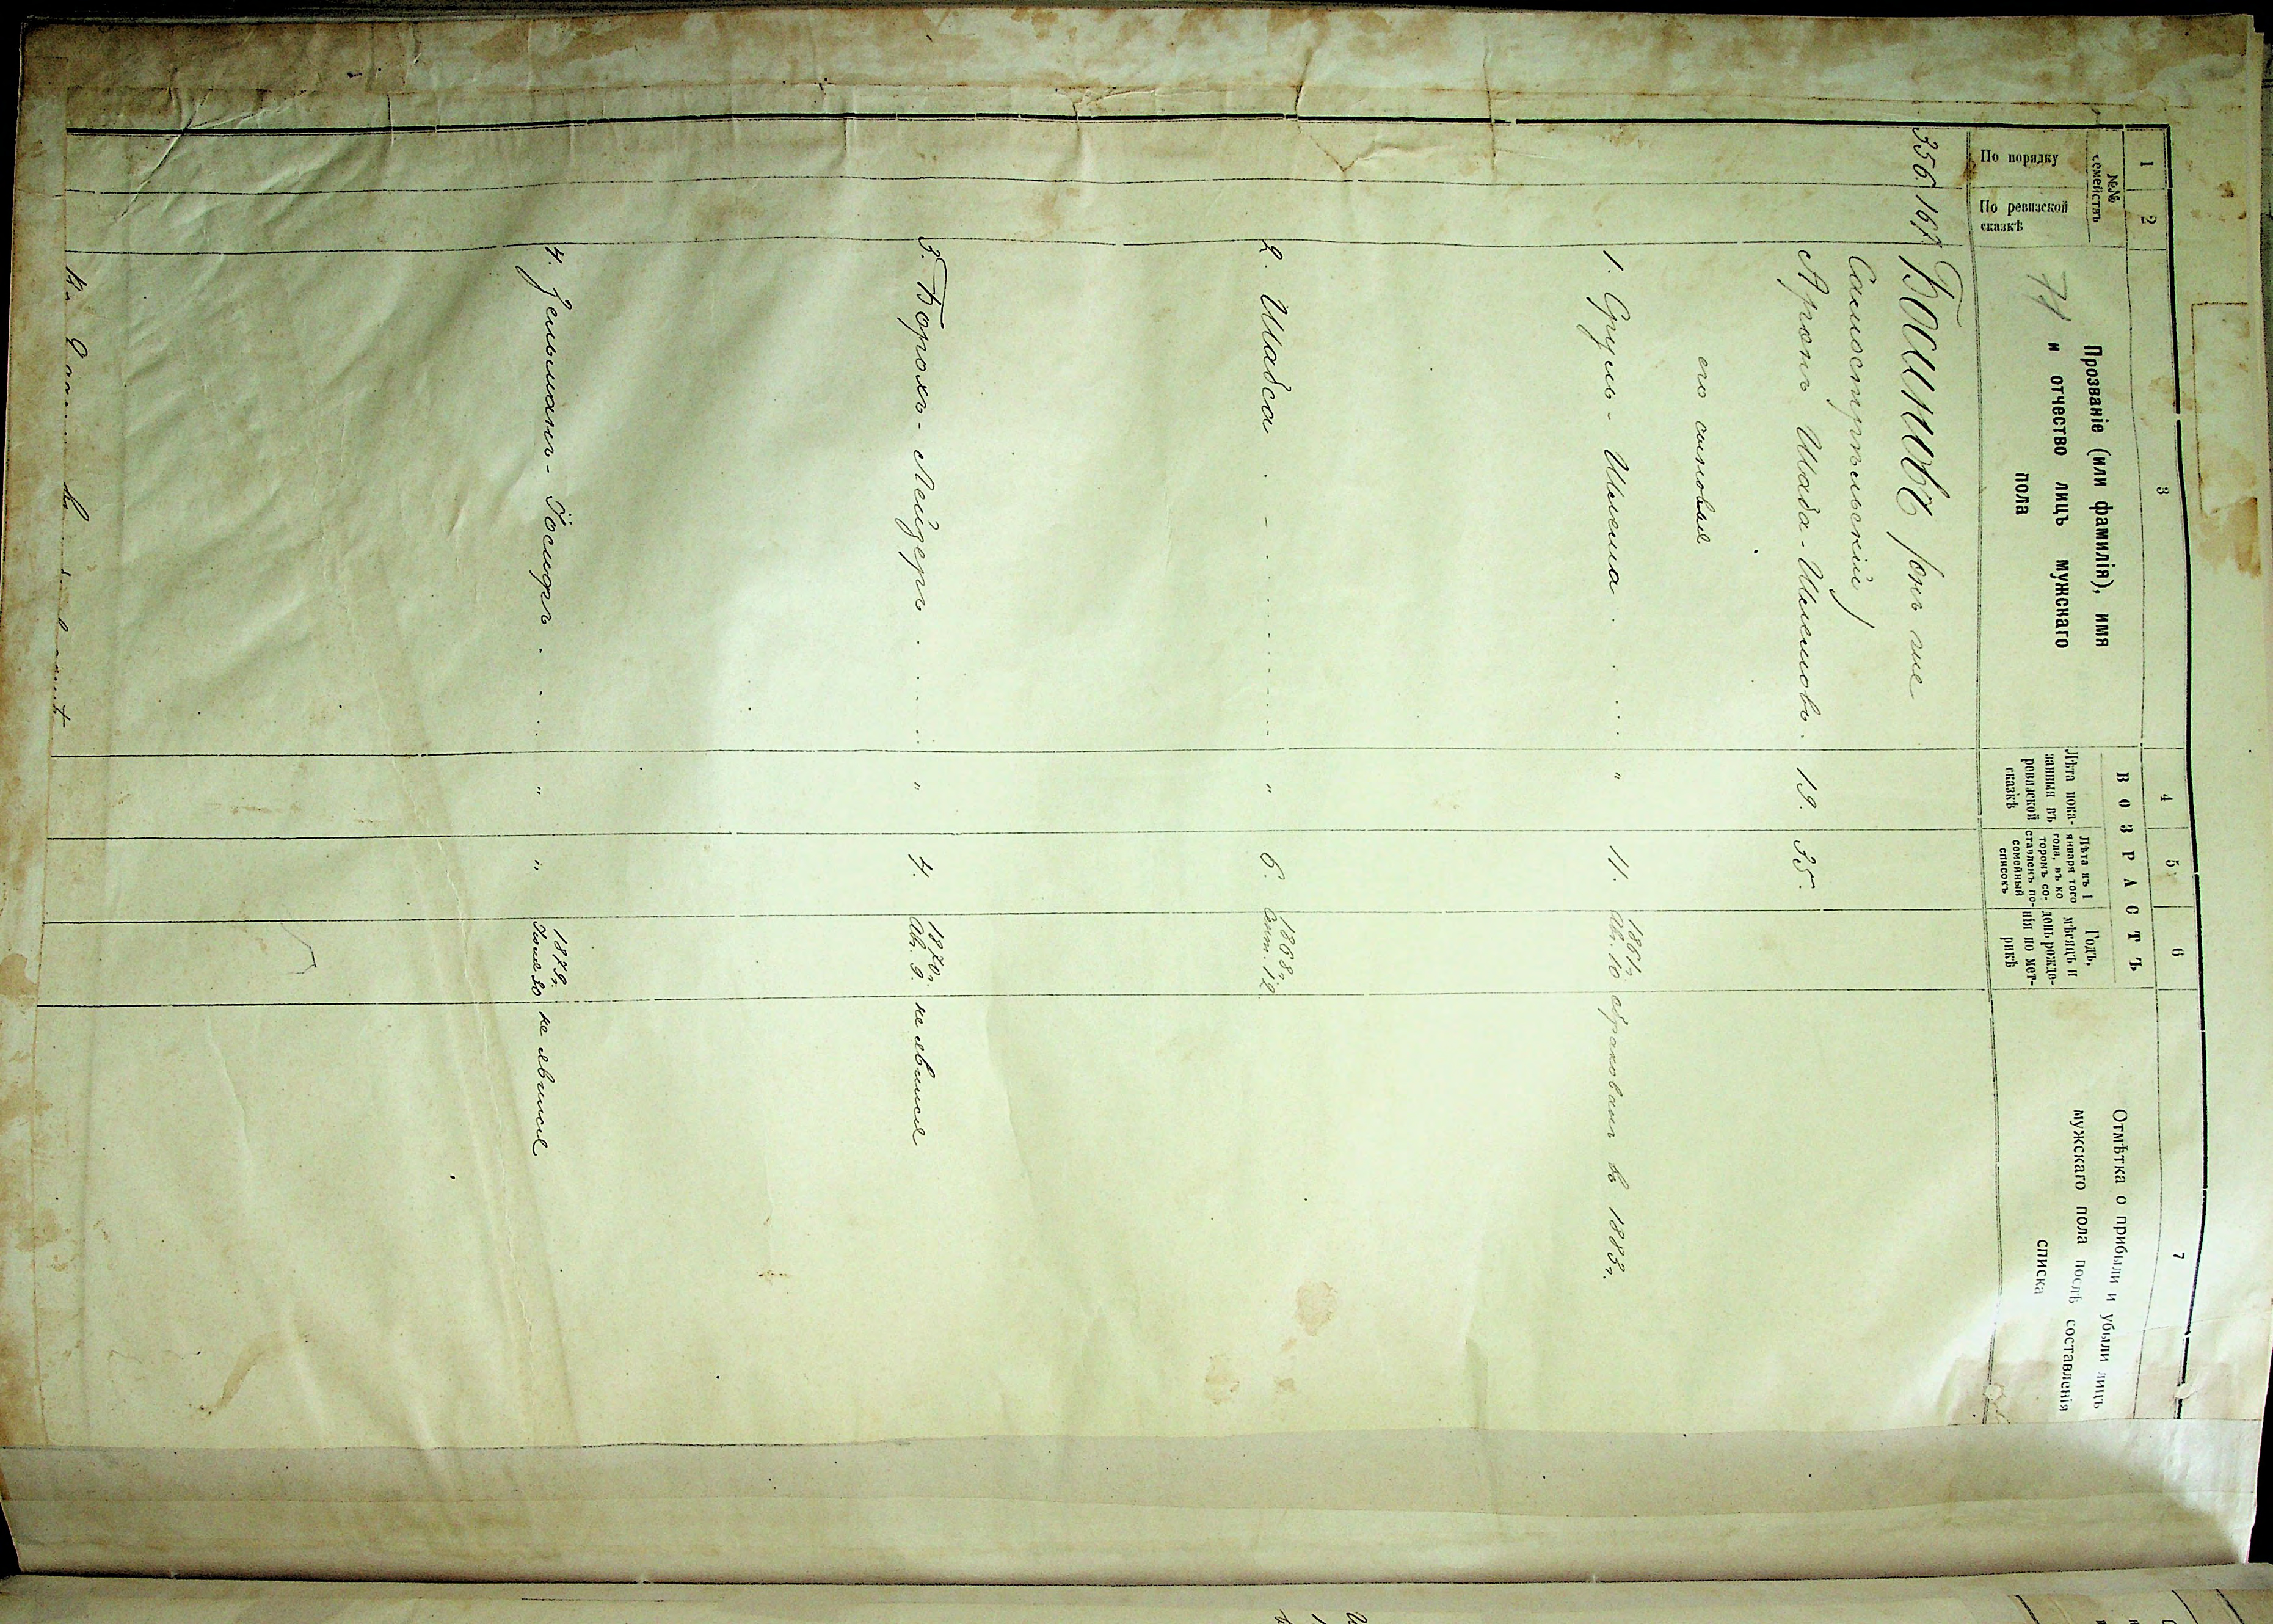 1
2
3
4
5
6
7
№№ семействъ
По порядку
По ревизской сказкѣ
Прозваніе (или фамилія), имя
и отчество лицъ мужскаго
пола
ВОЗРАСТЪ
Лѣта пока-
занныя въ
ревизской
сказкѣ
Лѣта къ 1
января того
года, въ ко
торомъ со-
ставленъ по-
семейный
списокъ
Годъ,
мѣсяцъ и
день рожде-
нія по мет-
рикѣ
Отмѣтка о прибыли и убыли лицъ
мужскаго пола послѣ составленія
списка
356 167 (онъ же
Самострѣльскій)
Аронъ Шабса-Шлемовъ. 19. 35.
его сыновья
1. Сруль-Шлема . . . . . " 11. 1861г. Ав. 10 обракованъ въ 1883г.
2. Шабса . . . . . " 6. 1868г. Сент. 12.
3. Борохъ-Лейзеръ . . . . " 4. 1870г. Ав. 9. не явился
4. Зельманъ-Іосифъ . . . . " " 1879г. Іюля 20 не явился